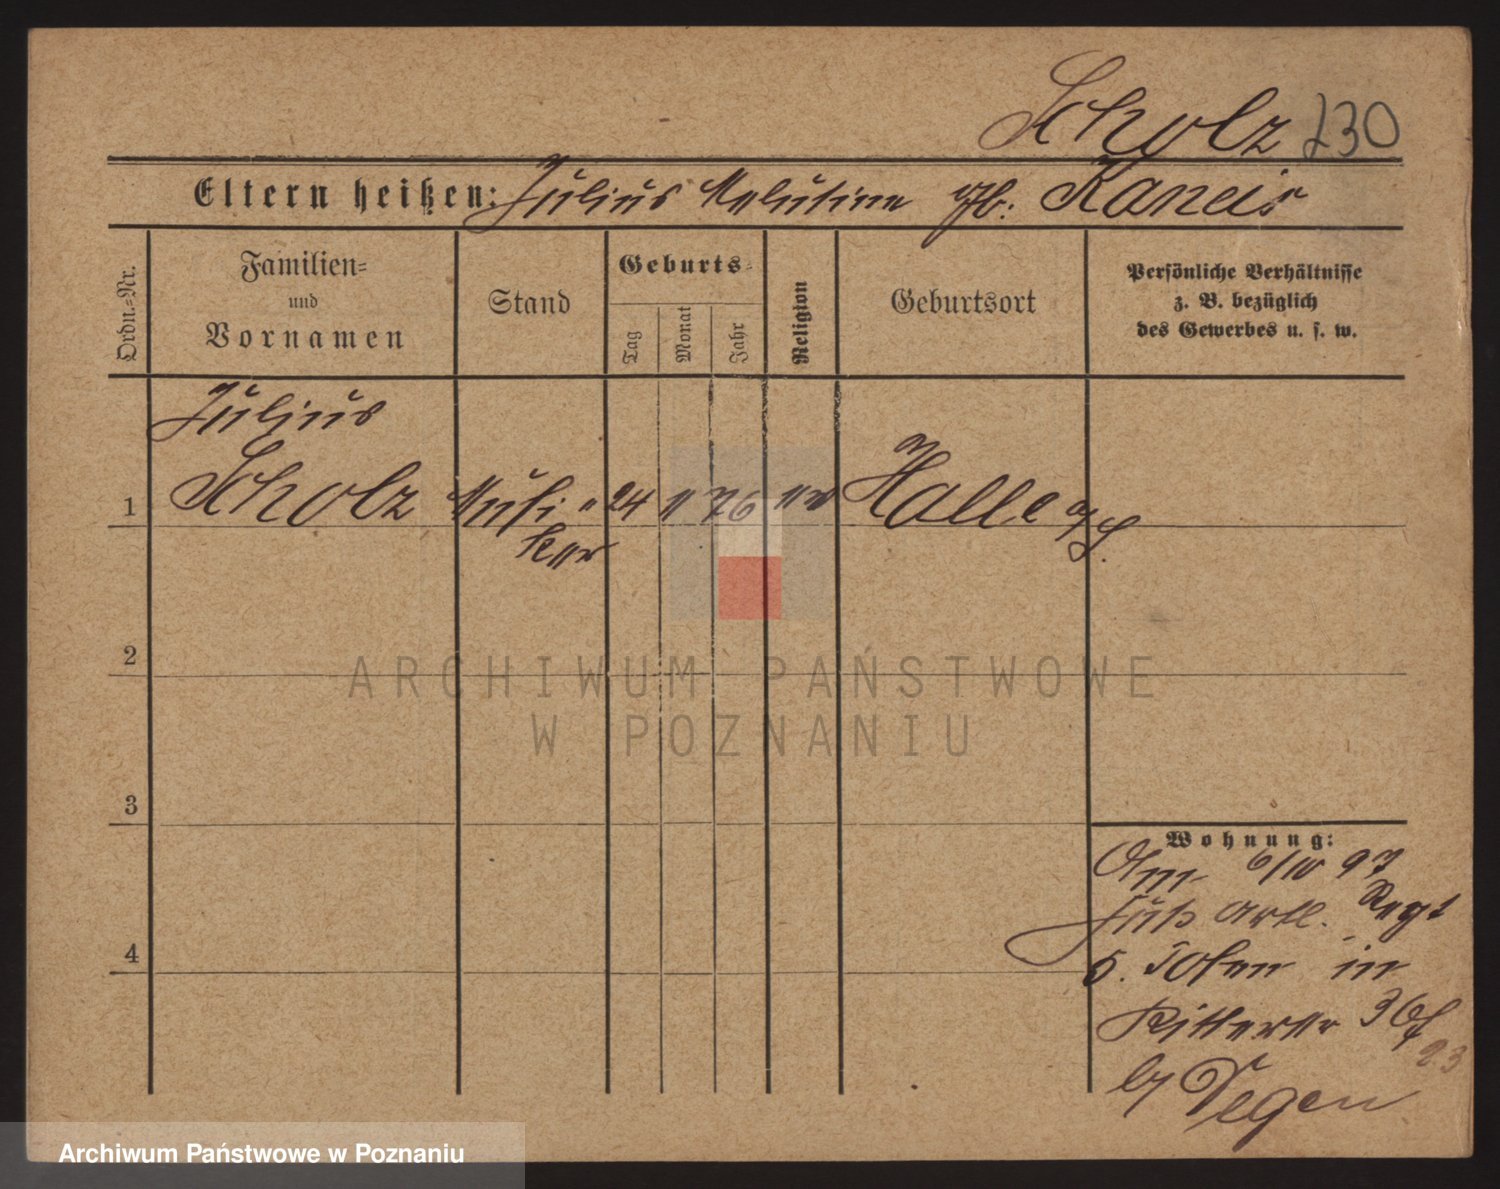 Scholz 230
Eltern heißen: Julius Melusine geb. Kaneis
Ordn.=Nr.
Familien=
und
Vornamen
Stand
Geburts=
Tag
Monat
Jahr
Religion
Geburtsort
Persönliche Verhältnisse
z. B. bezüglich
des Gewerbes u. s. w.
Julius
1 Scholz Musi= 24 76 Halle a/S.
ker
2
ARCHIWUM PAŃSTWOWE
W POZNANIU
3
Wohnung:
6/10 97
Fuß Artl. Regt
4
5. Posen in
Ritterstr 36
23
b/ Degen
Archiwum Państwowe w Poznaniu